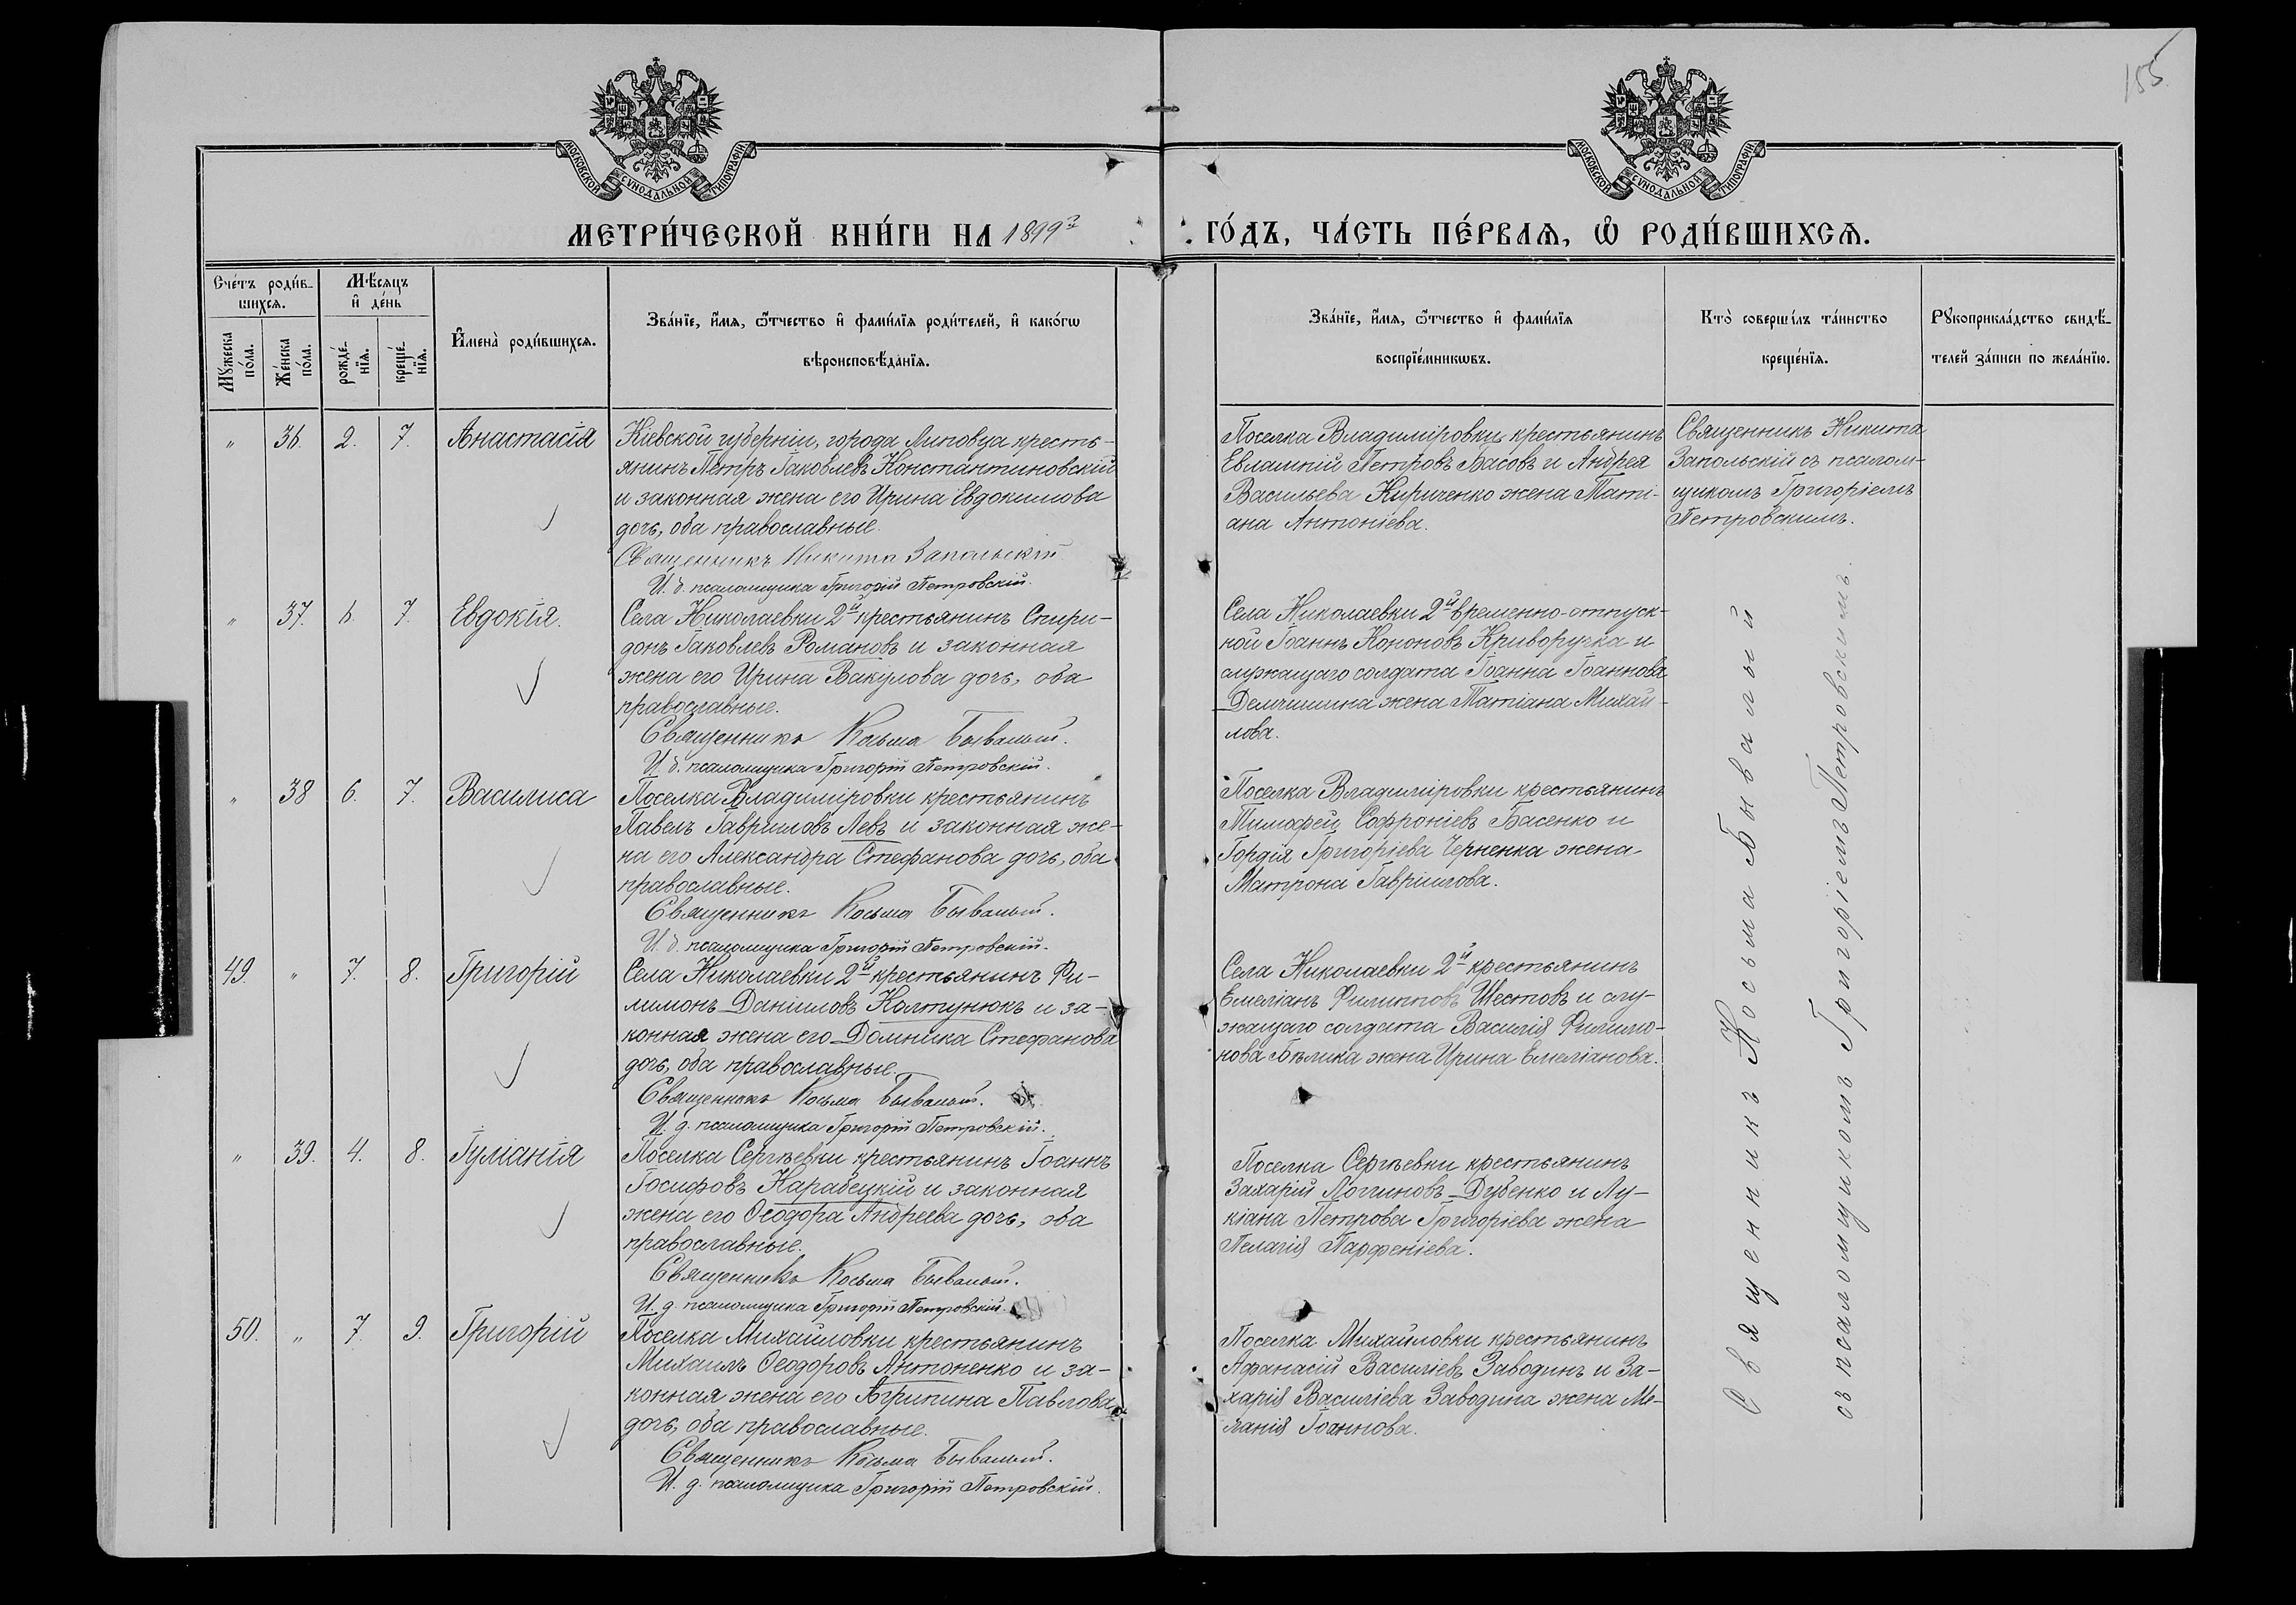 155
МОСКОВСКОЙ СѴНОДАЛЬНОЙ ТИПОГРАФІИ
МОСКОВСКОЙ СѴНОДАЛЬНОЙ ТИПОГРАФІИ
МЕТРИ́ЧЕСКОЙ КНИ́ГИ НА 1899й
ГО́ДЪ, ЧА́СТЬ ПЕ́РВАѦ, Ѽ РОДИ́ВШИХСѦ.
Сче́тъ роди́в-
шихсѧ.
Мѣ́сѧцъ
и҆ де́нь
Мꙋ́жеска
по́ла.
Же́нска
по́ла.
рожде́-
нїѧ.
креще́-
нїѧ.
И҆мена̀ роди́вшихсѧ.
Зва́нїе, и҆́мѧ, ѻ҆́тчество и҆ фами́лїѧ роди́телей, и҆ како́гѡ
вѣроисповѣ́данїѧ.
Зва́нїе, и҆́мѧ, ѻ҆́тчество и҆ фами́лїѧ
воспрїе́мникѡвъ.
Кто̀ соверши́лъ та́инство
креще́нїѧ.
Рꙋкоприкла́дство свидѣ́-
телей за́писи по жела́нїю.
" 36. 2. 7. Анастасія
Кіевской губерніи, города Липовца кресть-
янинъ Петръ Іаковлевъ Константиновскій
и законная жена его Ирина Евдокимова
дочь, оба православные.
Священникъ Никита Запольскій
И. д. псаломщика Григорій Петровскій.
Поселка Владиміровки крестьянинъ
Евлампій Петровъ Басовъ и Андрея
Васильева Кириченко жена Таті-
ана Антоніева.
Священникъ Никита
Запольскій съ псалом-
щикомъ Григоріемъ
Петровскимъ.
" 37. 6. 7. Евдокія.
Села Николаевки 2й крестьянинъ Спири-
донъ Іаковлевъ Романовъ и законная
жена его Ирина Вакулова дочь, оба
православные.
Священникъ Косьма Бывалый.
И. д. псаломщика Григорій Петровскій.
Села Николаевки 2й временно-отпуск-
ной Іоаннъ Кононовъ Криворучка и
служащаго солдата Іоанна Іоаннова
Демчишина жена Татіана Михай-
лова.
" 38 6. 7. Василиса
Поселка Владиміровки крестьянинъ
Павелъ Гавріиловъ Левъ и законная же-
на его Александра Стефанова дочь, оба
православные.
Священникъ Косьма Бывалый.
И. д. псаломщика Григорій Петровскій.
Поселка Владиміровки крестьянинъ
Тимофей Софроніевъ Басенко и
Гордія Григоріева Черненка жена
Матрона Гавріилова.
49. " 7. 8. Григорій
Села Николаевки 2й крестьянинъ Фи-
лимонъ Даніиловъ Колтунюкъ и за-
конная жена его Домника Стефанова
дочь, оба православные.
Священникъ Косьма Бывалый.
И. д. псаломщика Григорій Петровскій.
Села Николаевки 2й крестьянинъ
Емеліанъ Филипповъ Шестовъ и слу-
жащаго солдата Василія Филимо-
нова Бѣлика жена Ирина Емеліанова.
" 39. 4. 8. Іуліанія
Поселка Сергѣевки крестьянинъ Іоаннъ
Іосифовъ Карабецкій и законная
жена его Ѳеодора Андреева дочь, оба
православные.
Священникъ Косьма Бывалый.
И. д. псаломщика Григорій Петровскій.
Поселка Сергѣевки крестьянинъ
Захарій Логгиновъ Дубенко и Лу-
кіана Петрова Григоріева жена
Пелагія Парфеніева.
50. " 7. 9. Григорій
Поселка Михайловки крестьянинъ
Михаилъ Ѳеодоровъ Антоненко и за-
конная жена его Агрипина Павлова
дочь, оба православные.
Священникъ Косьма Бывалый.
И. д. псаломщика Григорій Петровскій.
Поселка Михайловки крестьянинъ
Афанасій Василіевъ Заводинъ и За-
харія Василіева Заводина жена Ме-
ланія Іоаннова.
Священникъ Косьма Бывалый
съ псаломщикомъ Григоріемъ Петровскимъ.